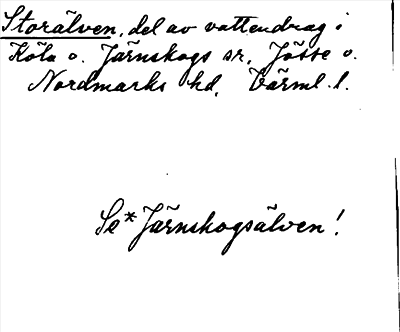 Storälven, del av vattendrag i
Köla o. Järnskogs sr, Jösse o.
Nordmarks hd, Värml. l.
Se *Järnskogsälven!